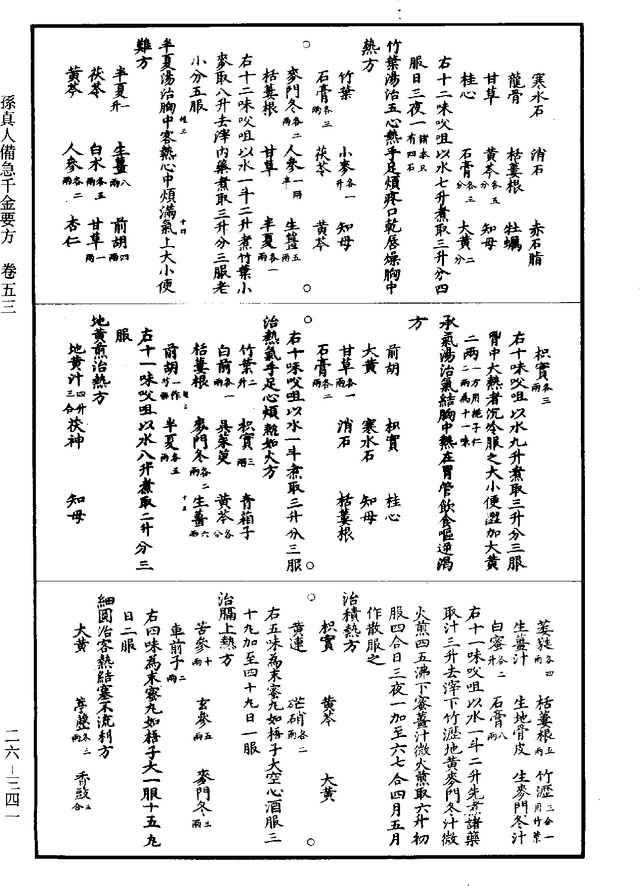 孫真人備急千金要方　卷五三
二六—三四一
寒水石　消石　赤石脂
龍骨　栝蔞根　牡蠣
甘草　黃芩各五分　知母
桂心　石膏各三分　大黃二分
右十二味㕮咀以水七升煮取三升分四
服日三夜一
竹葉湯治五心熱手足煩疼口乾唇燥胸中
熱方
竹葉　小麥各一升　知母
石膏各三兩　茯苓　黃芩
麥門冬各二兩　人參一兩半　生薑五兩
栝蔞根　甘草　半夏各一兩
右十二味㕮咀以水一斗二升煮竹葉小
麥取八升去滓內藥煮取三升分三服老
小分五服
半夏湯治胸中客熱心中煩滿氣上大小便
難方
半夏一升　生薑八兩　前胡四兩
茯苓　白水各五兩　甘草一兩
黃芩　人參各二兩　杏仁
枳實各三兩
右十味㕮咀以水九升煮取三升分三服
胃中大熱者沉冷服之大小便澀加大黃
二兩一方用梔子仁二兩為十一味
承氣湯治氣結胸中熱在胃管飲食嘔逆渴
方
前胡　枳實　桂心
大黃　寒水石　知母
甘草各一兩　消石　栝蔞根
石膏各二兩
右十味㕮咀以水一斗煮取三升分三服
治熱氣手足心煩熱如火方
竹葉一升　枳實三兩　青葙子
白前各一兩　吳茱萸　黃芩各
栝蔞根　麥門冬各二兩　生薑六兩
前胡一作芍藥　半夏各五兩
右十一味㕮咀以水八升煮取二升分三
服
地黃煎治熱方
地黃汁四升三合　茯神　知母
萎蕤各四兩　栝蔞根五兩　竹瀝三合一用竹葉
生薑汁　生地骨皮　生麥門冬汁
白蜜各二升　石膏八兩
右十一味㕮咀以水一斗二升先煮諸藥
取汁三升去滓下竹瀝地黃麥門冬汁微
火煎四五沸下蜜薑汁微火煎取六升初
服四合日三夜一加至六七合四月五月
作散服之
治積熱方
枳實　黃芩　大黃
黃連　芒硝各二兩
右五味為末蜜丸如梧子大空心酒服三
十丸加至四十九日一服
治膈上熱方
苦參十兩　玄參五兩　麥門冬三兩
車前子二兩
右四味為末蜜丸如梧子大一服十五丸
日二服
細圓治客熱結塞不流利方
大黃　葶藶各三兩　香豉三合